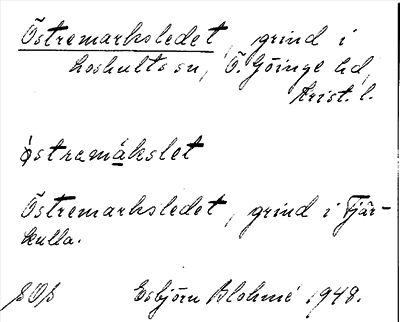 Östremarksledet, grind i
Loshults sn, Ö. Göinge hd,
Krist. l.
östremákslet
Östremarksledet, grind i Tjär-
kulla.
Esbjörn Blohmé 1948.